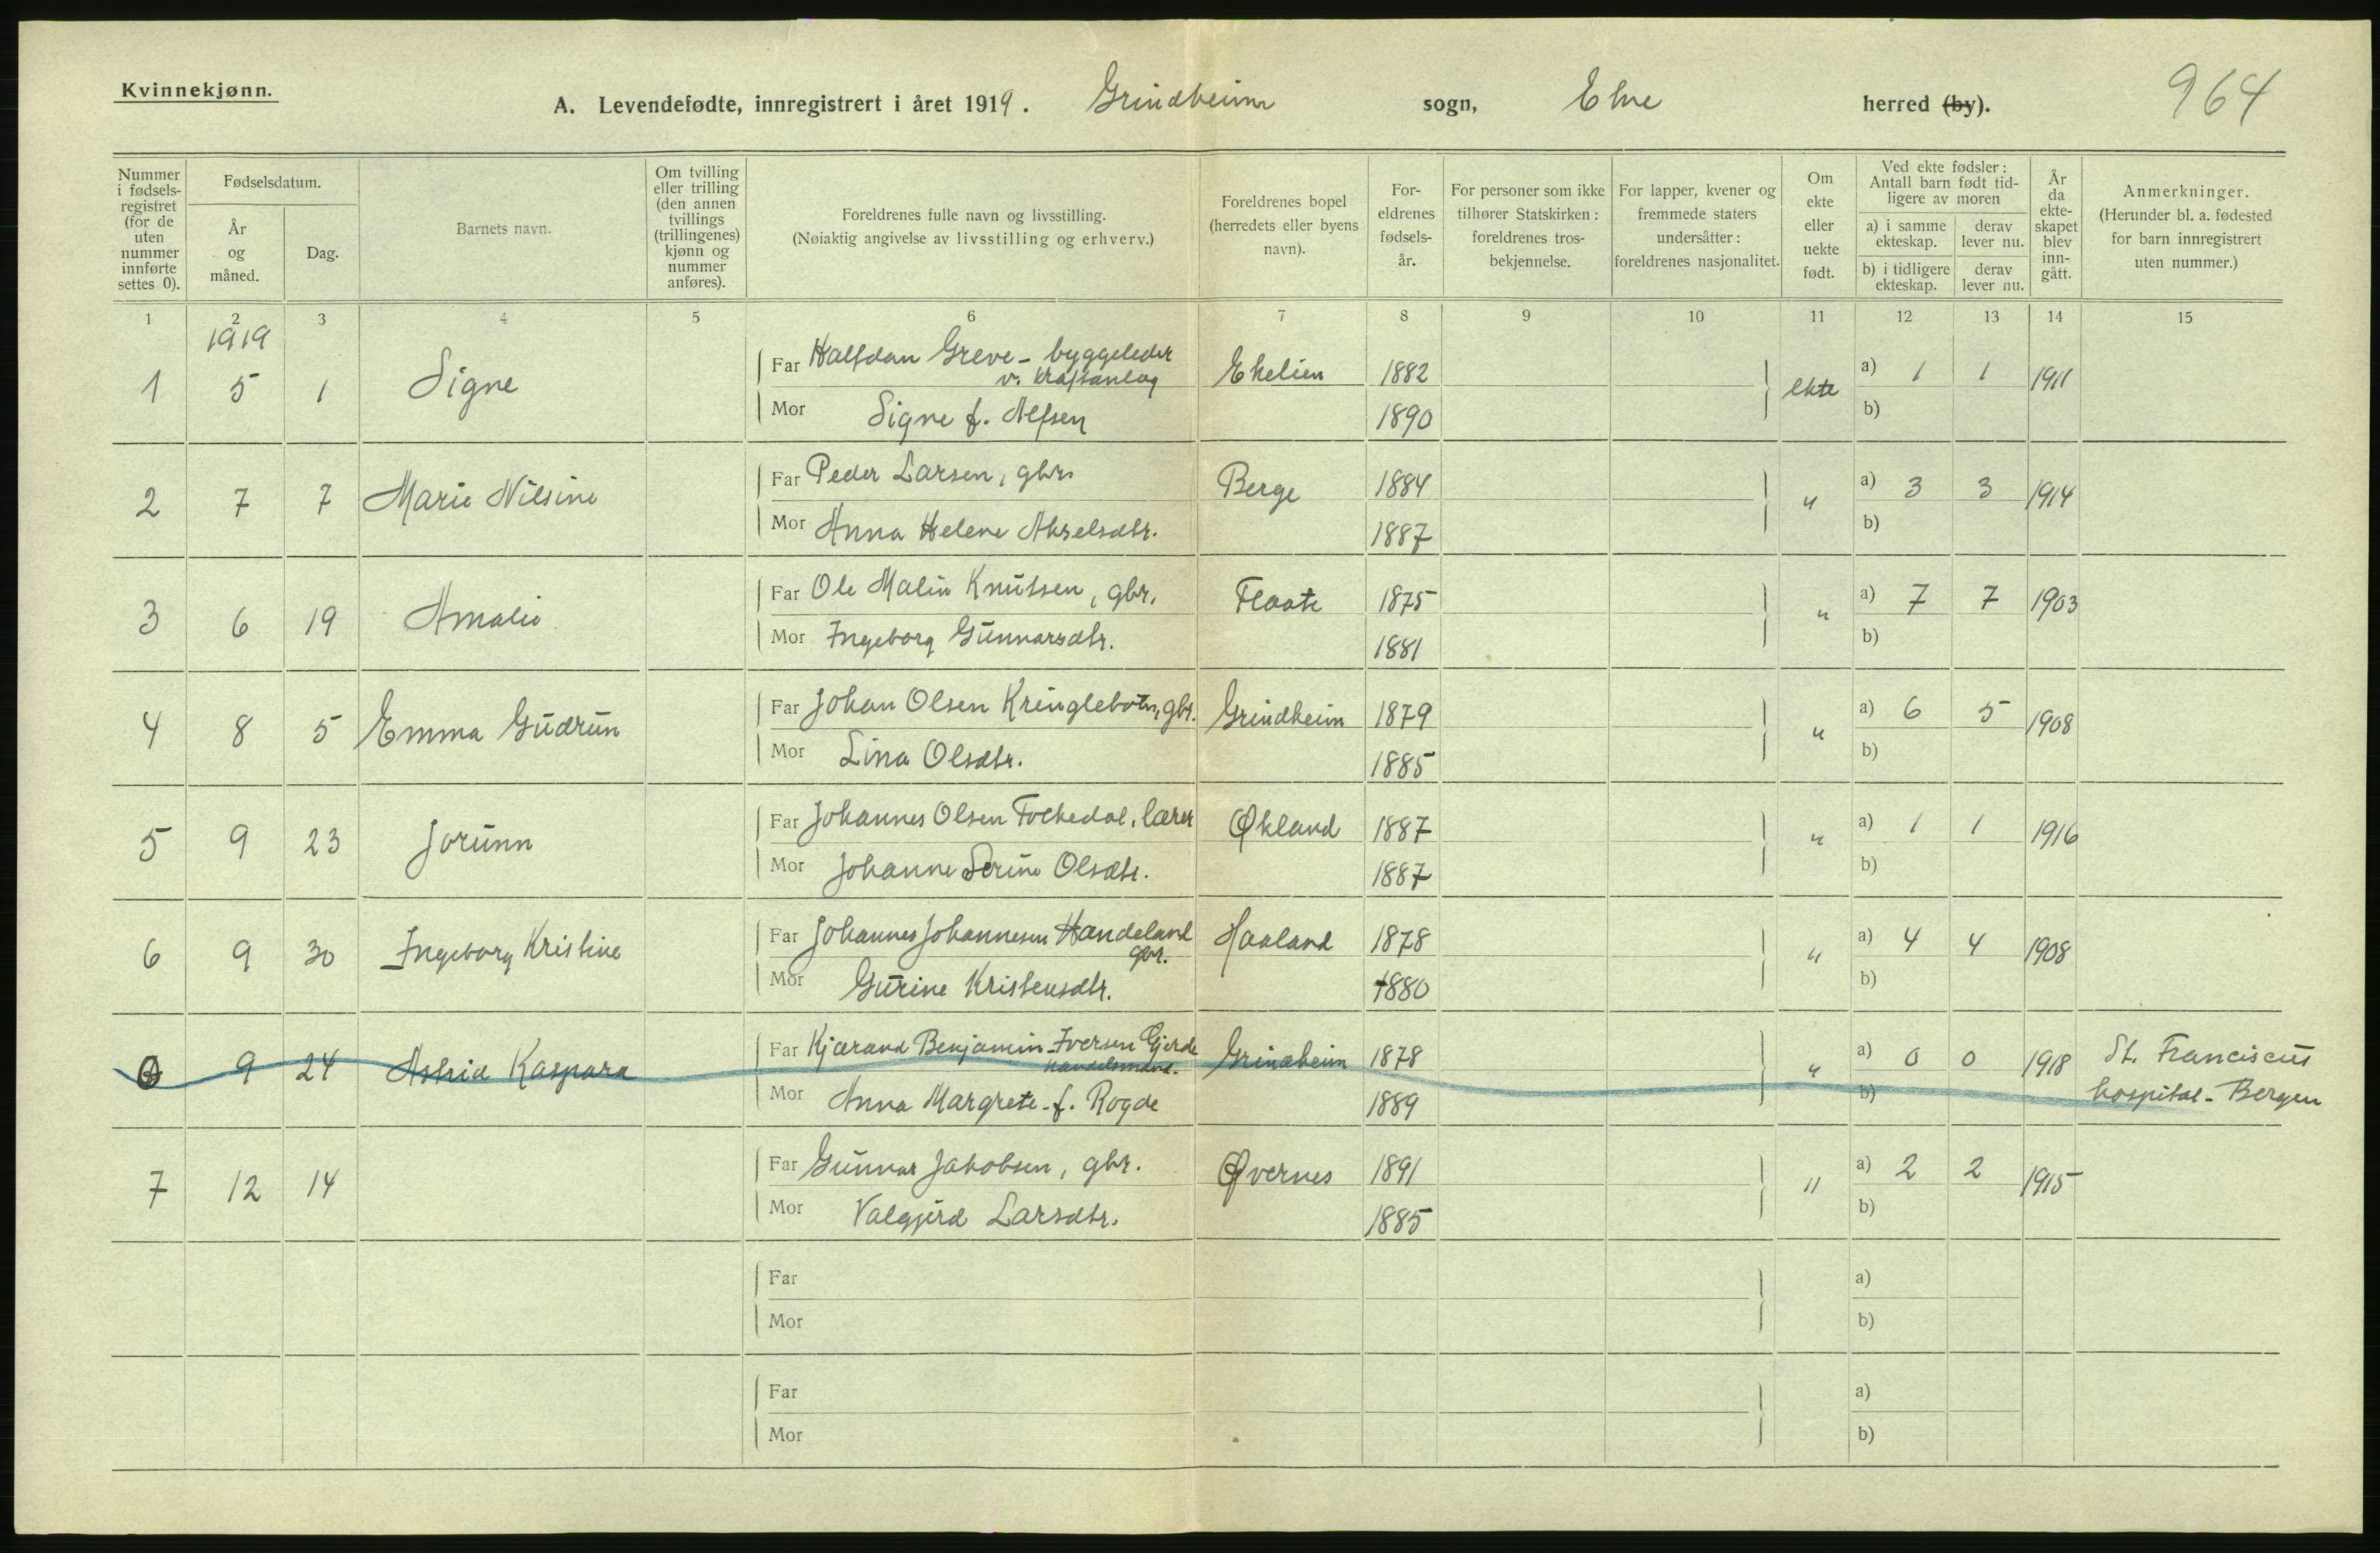 Kvinnekjønn.
A. Levendefødte, innregistrert i året 1919. Grindheim sogn, Etne herred (by). 964
Nummer i fødsels-registret (for de uten nummer innførte settes 0).
Fødselsdatum.
År og måned.
Dag.
Barnets navn.
Om tvilling eller trilling (den annen tvillings (trillingenes) kjønn og nummer anføres).
Foreldrenes fulle navn og livsstilling.
(Nøiaktig angivelse av livsstilling og erhverv.)
Foreldrenes bopel (herredets eller byens navn).
For-eldrenes fødsels-år.
For personer som ikke tilhører Statskirken: foreldrenes tros-bekjennelse.
For lapper, kvener og fremmede staters undersåtter: foreldrenes nasjonalitet.
Om ekte eller uekte født.
Ved ekte fødsler: Antall barn født tid-ligere av moren
a) i samme ekteskap.
derav lever nu.
b) i tidligere ekteskap.
derav lever nu.
År da ekte-skapet blev inn-gått.
Anmerkninger.
(Herunder bl. a. fødested for barn innregistrert uten nummer.)
1 2 3 4 5 6 7 8 9 10 11 12 13 14 15
1919
1 5 1 Signe Far Halfdan Greve - byggeleder v. kraftanlæg Ekelien 1882 ekte a) 1 1 1911
Mor Signe f. Alfsen 1890 b)
2 7 7 Marie Nilsine Far Peder Larsen, gbr. Berge 1884 " a) 3 3 1914
Mor Anna Helene Akselsdtr. 1887 b)
3 6 19 Amalie Far Ole Malin Knutsen, gbr. Flaate 1875 " a) 7 7 1903
Mor Ingeborg Gunnarsdtr. 1881 b)
4 8 5 Emma Gudrun Far Johan Olsen Kringlebotn, gbr. Grindheim 1879 " a) 6 5 1908
Mor Lina Olsdtr. 1885 b)
5 9 23 Jorunn Far Johannes Olsen Folkedal, lærer Økland 1887 " a) 1 1 1916
Mor Johanne Serine Olsdtr. 1887 b)
6 9 30 Ingeborg Kristine Far Johannes Johannesen Handeland gbr. Haaland 1878 " a) 4 4 1908
Mor Gurine Kristensdtr. 1880 b)
0 9 24 Astrid Kaspara Far Kjærand Benjamin Iversen Gjerde handelsmand. Grindheim 1878 " a) 0 0 1918 St. Franciscus
Mor Anna Margrete f. Rogde 1889 b) hospital - Bergen
7 12 14 Far Gunnar Jakobsen, gbr. Øvernes 1891 " a) 2 2 1915
Mor Valgjerd Larsdtr. 1885 b)
Far a)
Mor b)
Far a)
Mor b)